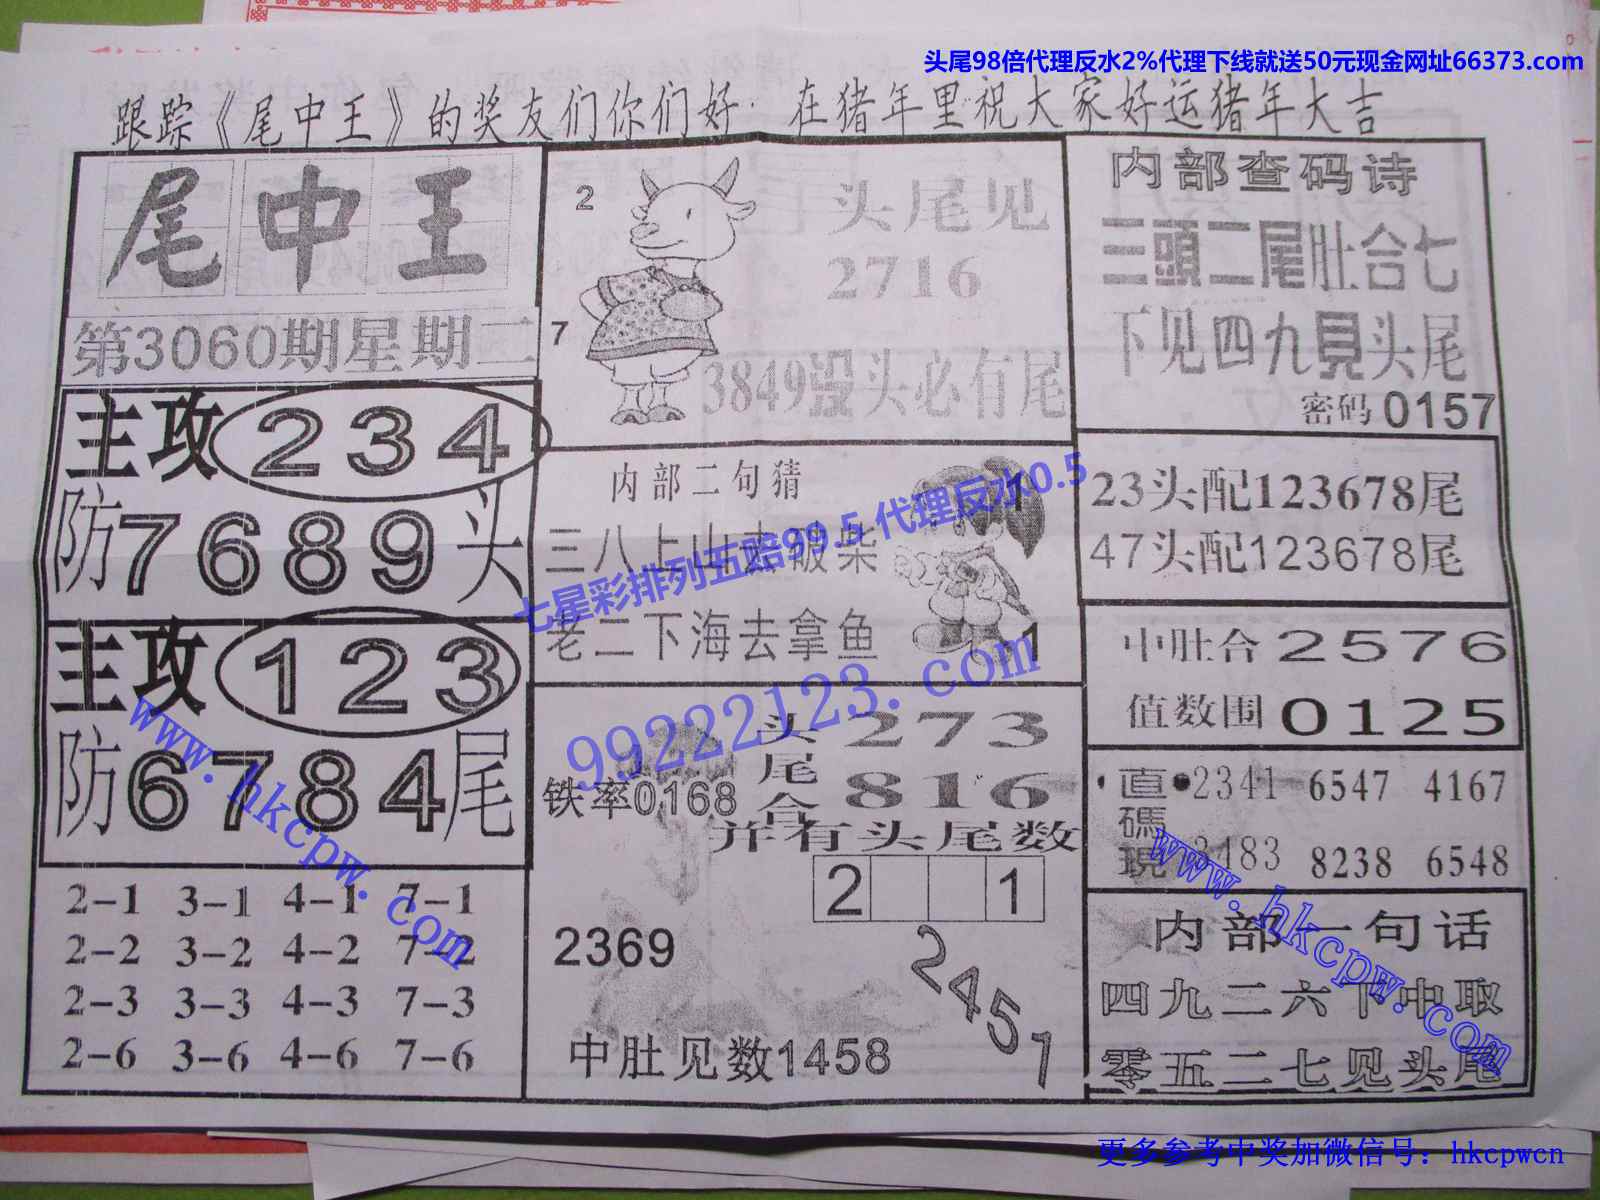 头尾98倍代理反水2%代理下线就送50元现金网址66373.com
跟踪《尾中王》的奖友们你们好· 在猪年里祝大家好运猪年大吉
尾中王
第3060期星期二
主攻234
防7689头
主攻123
防6784尾
2-1 3-1 4-1 7-1
2-2 3-2 4-2 7-2
2-3 3-3 4-3 7-3
2-6 3-6 4-6 7-6
2
7
头尾见
2716
3849没头必有尾
内部二句猜
三八上山去破柴
老二下海去拿鱼
1
1
铁率0168
头尾合
273
816
并有头尾数
2 1
2369
2451
中肚见数1458
内部查码诗
三頭二尾肚合七
下见四九見头尾
密码0157
23头配123678尾
47头配123678尾
中肚合2576
值数围0125
直碼現
2341 6547 4167
3483 8238 6548
内部一句话
四九二六下中取
零五二七见头尾
七星彩排列五赔99.5 代理反水0.5
99222123.com
www.hkcpw.com
www.hkcpw.com
更多参考中奖加微信号：hkcpwcn